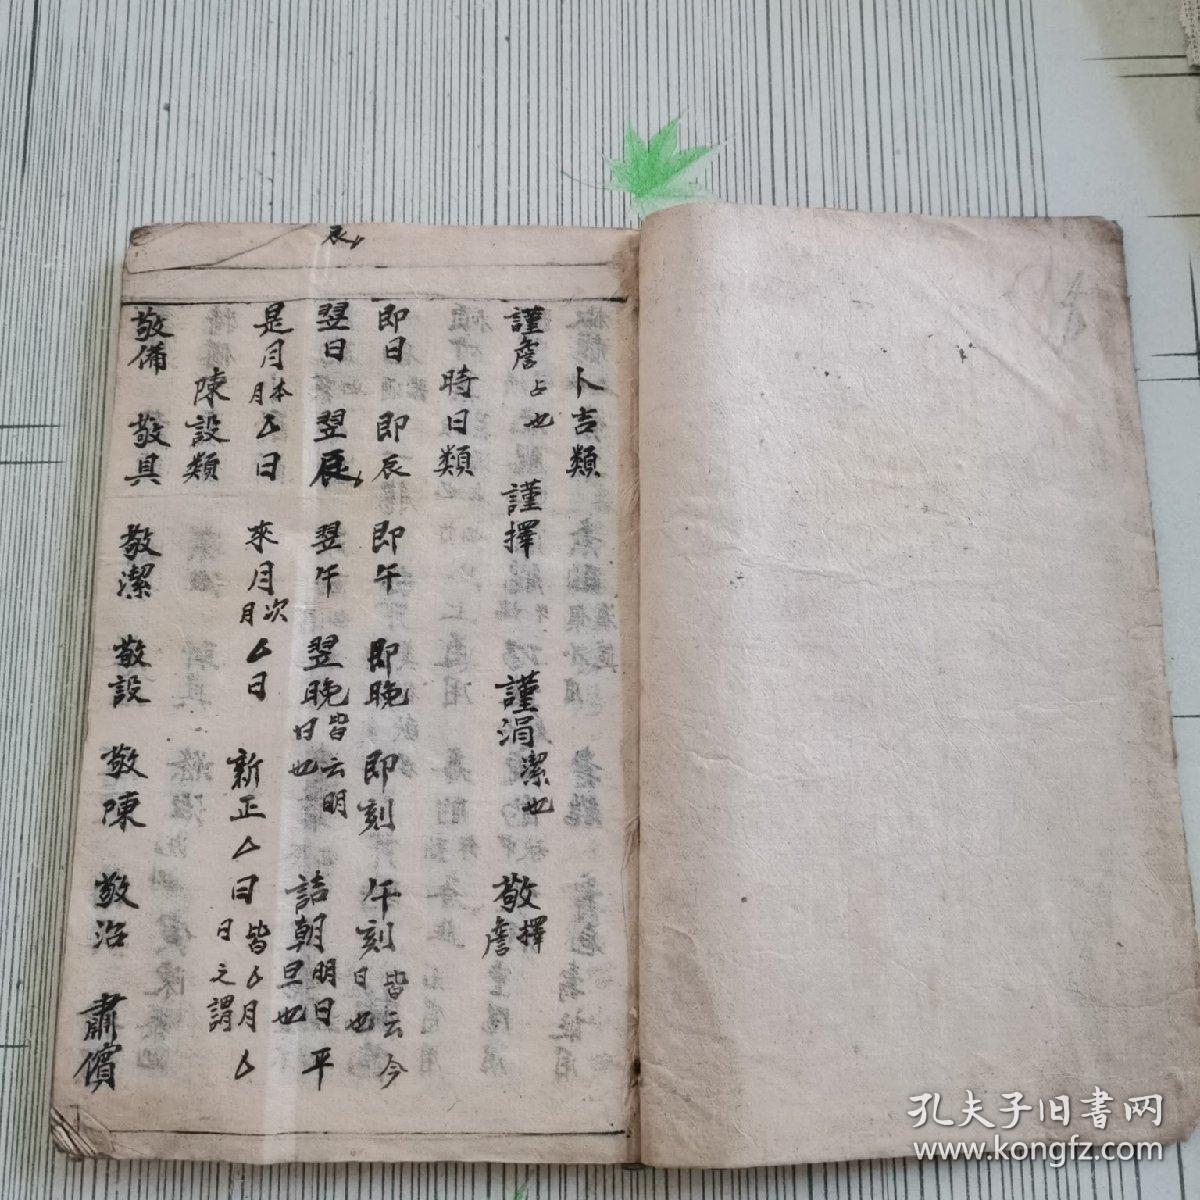 卜吉類
謹詹占也 謹擇 謹涓潔也 敬擇詹
時日類
即日 即辰 即午 即晚 即刻 午刻皆云今日也
翌日 翌辰 翌午 翌晚皆云明日也 詰朝明日平旦也
辰
是月本月△日 來月次月△日 新正△日皆△月△日之謂
陳設類
敬備 敬具 敬潔 敬設 敬陳 敬治 肅儐
孔夫子旧书网
www.kongfz.com